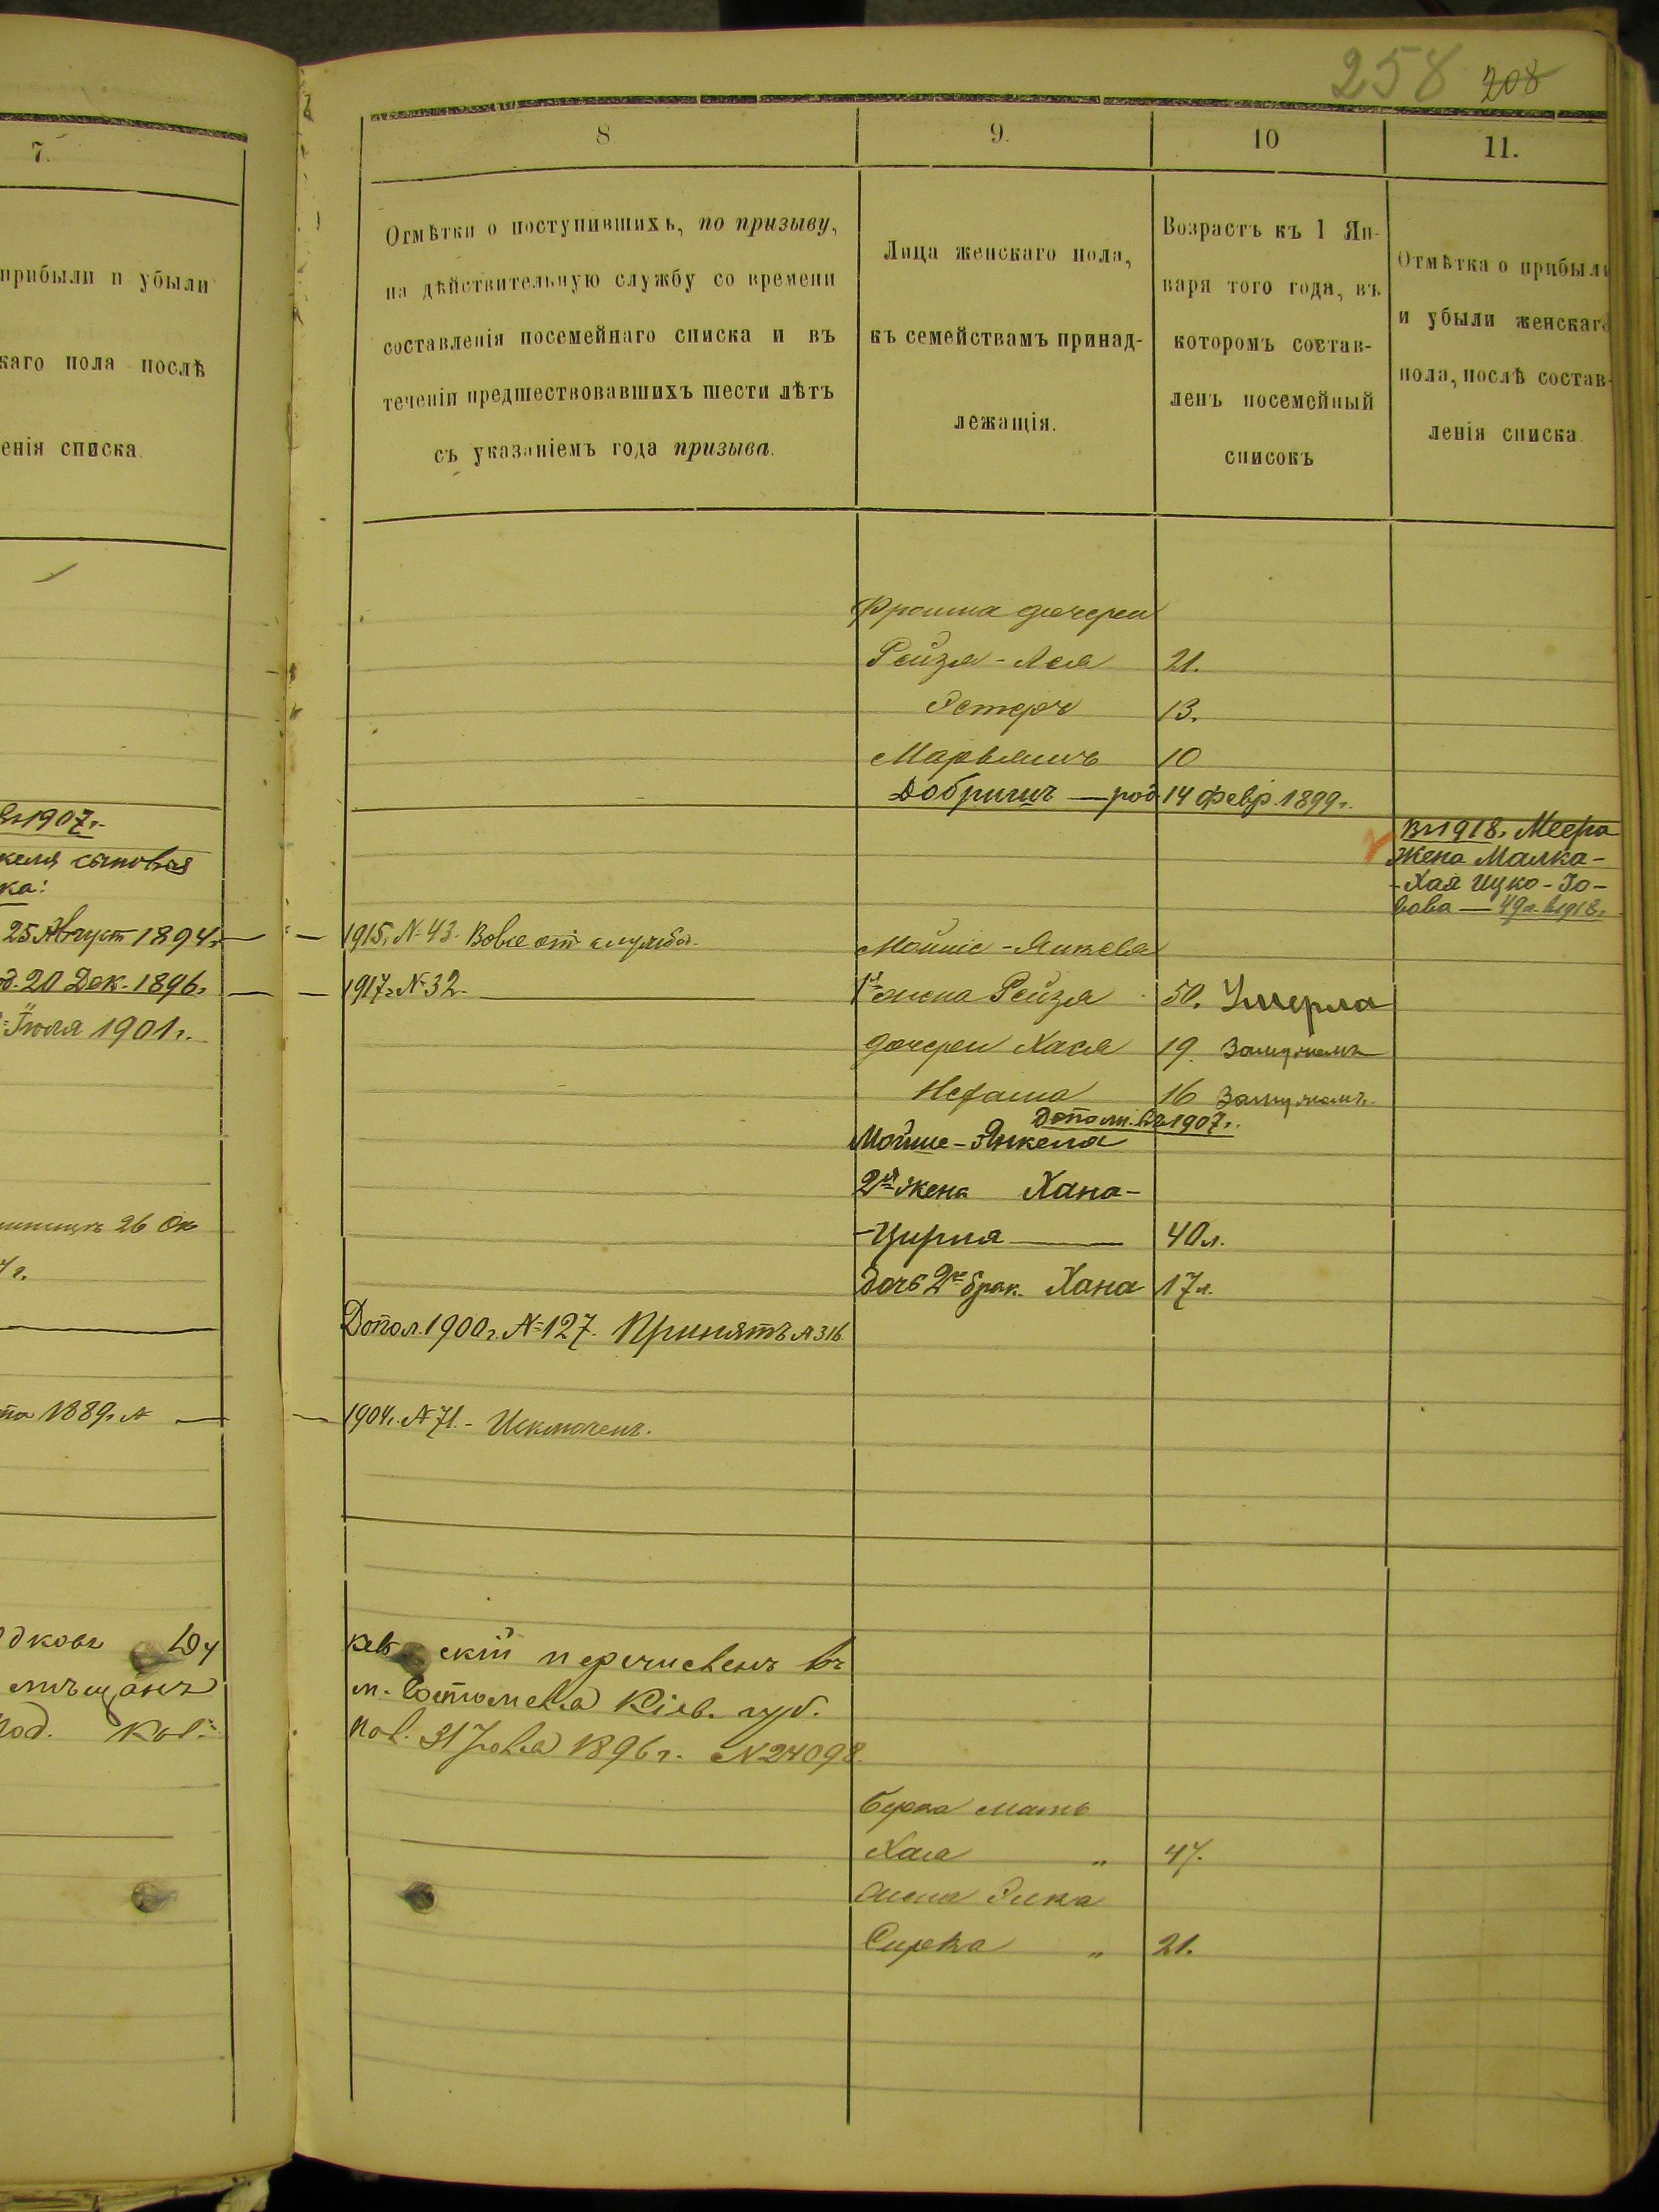 258 208
7.
8
9.
10
11.
прибыли и убыли
каго пола послѣ
енія списка.
Отмѣтки о поступившихъ, по призыву,
на дѣйствительную службу со времени
составленія посемейнаго списка и въ
теченіи предшествовавшихъ шести лѣтъ
съ указаніемъ года призыва.
Лица женскаго пола,
къ семействамъ принад-
лежащія.
Возрастъ къ 1 Ян-
варя того года, въ
которомъ состав-
ленъ посемейный
списокъ
Отмѣтка о прибыли
и убыли женскаго
пола, послѣ состав-
ленія списка.
Фроима дочери
Рейзя-Лея 21.
Эстеръ 13.
Марьямъ 10
Добришъ — род. 14 Февр. 1899 г.
Въ 1907 г.
келя сыновья
ка:
Въ 1918 г. Меера
жена Малка-
-Хая Ицко-Іо-
вова — 49 л. въ 1918 г.
25 Август 1894 г. — — 1915 г. № 43. Вовсе от службы.
Мойше-Янкеля
д. 20 Дек. 1896 г. — — 1917 г. № 32. —
1я жена Рейзя 50. Умерла
Іюля 1901 г.
дочери Хася 19. Замужемъ
Нехама 16 Замужемъ.
Дополн. въ 1907 г.
Мойше-Янкеля
2я жена Хана-
26 Ок
-Цирля — 40 л.
дочь 2го брак. Хана 17 л.
Допол. 1900 г. № 127. Принятъ № 316.
та 1889 г. № — — 1904 г. № 71. - Исключенъ.
скій перечисленъ въ
мѣщанъ
Кіев. губ.
под.
31 Іюля 1896 г. № 24098.
Берка мать
Хая " 47.
жена Эика
Сирка " 21.